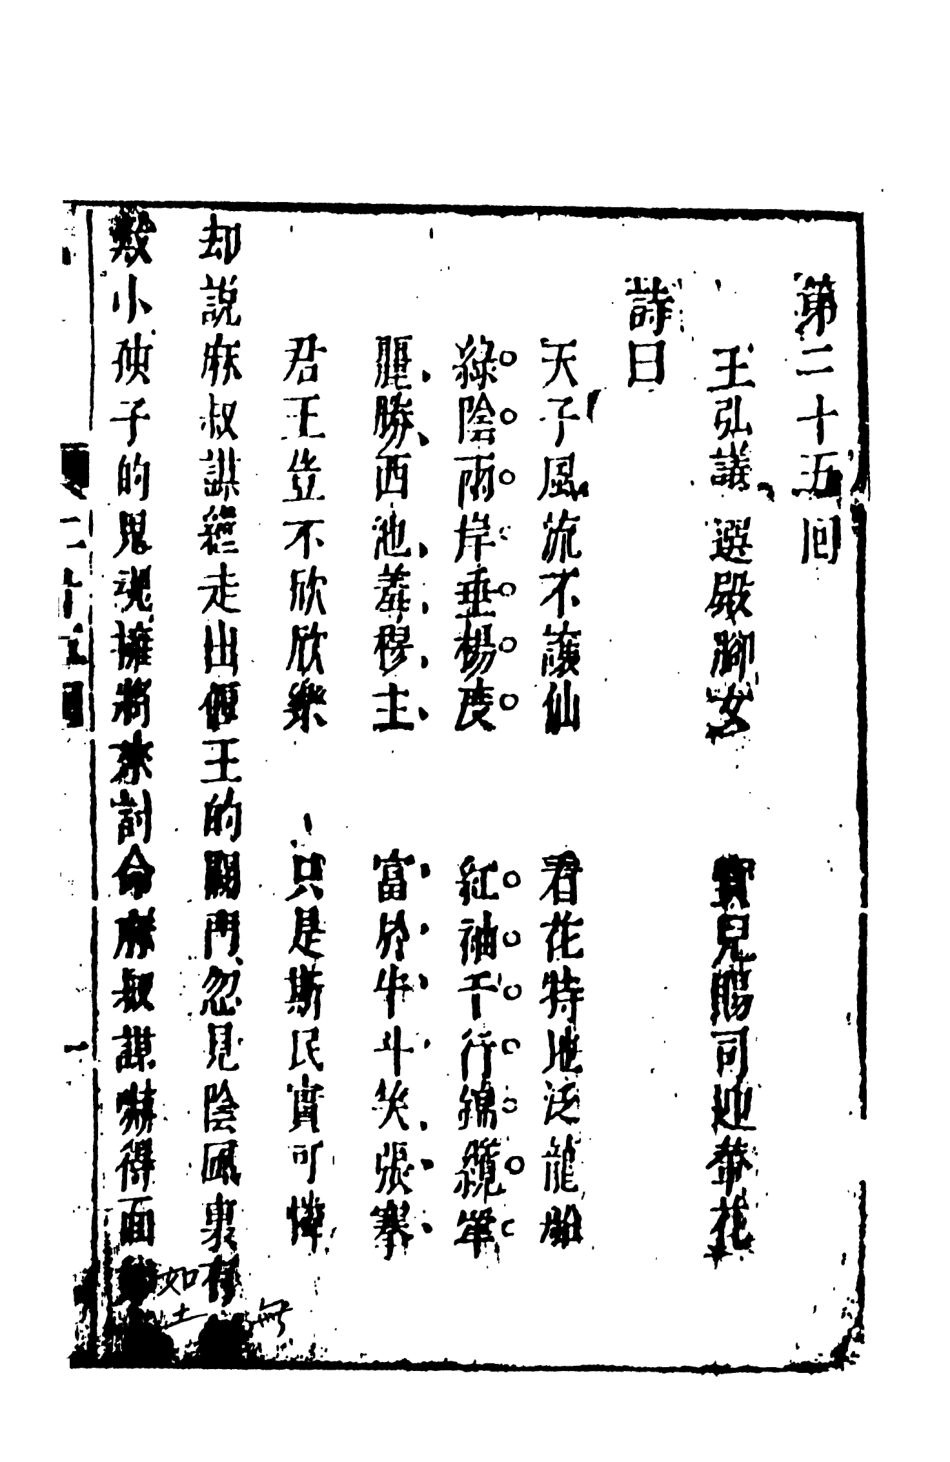 第二十五回
王弘議選殿脚女 寳兒賜司迎輦花
詩曰
天子風流不讓仙 君花特地泛龍船
綠陰雨岸垂楊度 紅袖千行錦纜牽
麗勝西池羞穆主 富於牛斗笑張騫
君王豈不欣欣樂 只是斯民實可憐
却說麻叔謀纔走出偃王的閣門忽見陰風裏有無
數小孩子的鬼魂擁將來討命麻叔謀嚇得面如土
二十五回 一